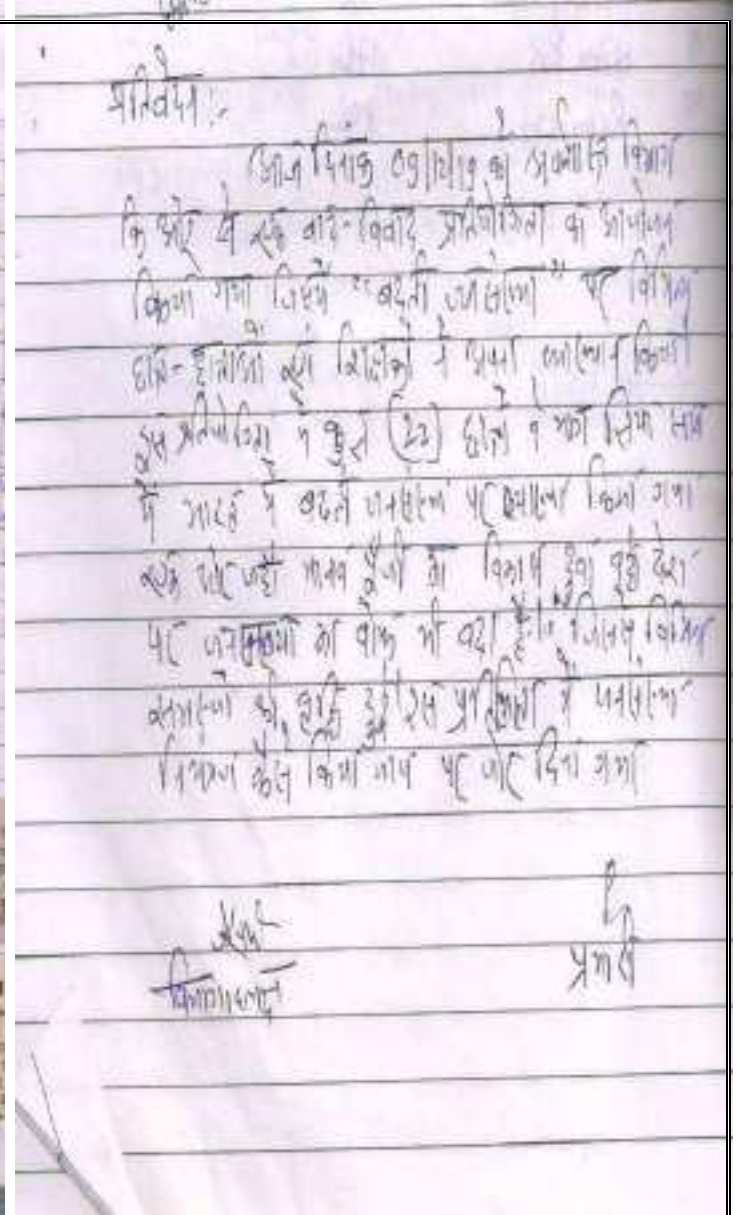 प्रतिवेदन :-
आज दिनांक को अर्थशास्त्र विभाग
कि ओर से एक वाद-विवाद प्रतियोगिता का आयोजन
किया गया जिसमें "बढ़ती जनसंख्या" पर विभिन्न
छात्र-छात्राओं एवं शिक्षकों ने अपना व्याख्यान किया
इस प्रतियोगिता में कुल (22) छात्रों ने भाग लिया साथ
में भारत में बढ़ते जनसंख्या पर किया गया
एक ओर जहाँ मानव पूँजी का विकास हुआ वहीं देश
पर जनसंख्या का बोझ भी बढ़ा है। जिससे विभिन्न
समस्याओं की वृद्धि हुई। इस प्रतियोगिता में जनसंख्या
नियंत्रण कैसे किया जाय पर जोर दिया गया
विभागाध्यक्ष
प्रभारी